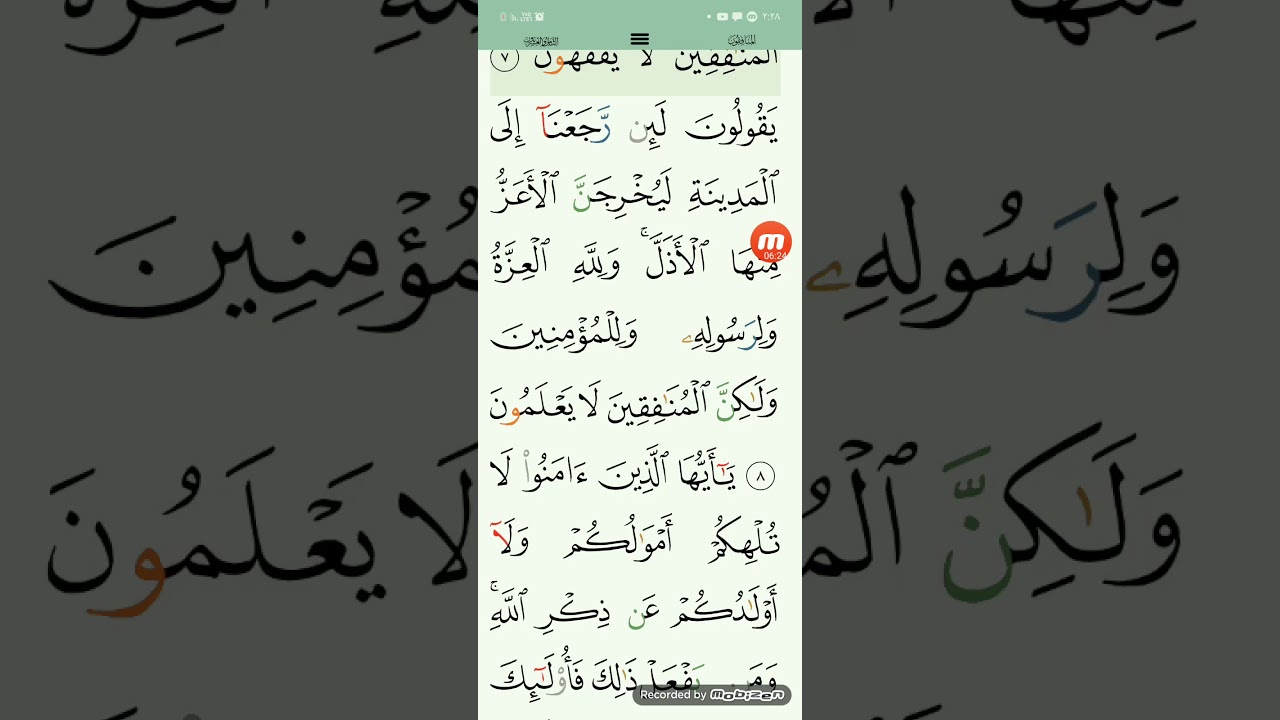 ٢:٢٨
المنافقون
ٱلْمُنَٰفِقِينَ لَا يَفْقَهُونَ ٧
يَقُولُونَ لَئِن رَّجَعْنَآ إِلَى
ٱلْمَدِينَةِ لَيُخْرِجَنَّ ٱلْأَعَزُّ
مِنْهَا ٱلْأَذَلَّ ۚ وَلِلَّهِ ٱلْعِزَّةُ
06:24
وَلِرَسُولِهِۦ وَلِلْمُؤْمِنِينَ
وَلَٰكِنَّ ٱلْمُنَٰفِقِينَ لَا يَعْلَمُونَ
٨ يَٰٓأَيُّهَا ٱلَّذِينَ ءَامَنُوا۟ لَا
تُلْهِكُمْ أَمْوَٰلُكُمْ وَلَآ
أَوْلَٰدُكُمْ عَن ذِكْرِ ٱللَّهِ ۚ
وَمَن يَفْعَلْ ذَٰلِكَ فَأُو۟لَٰٓئِكَ
Recorded by mobizen